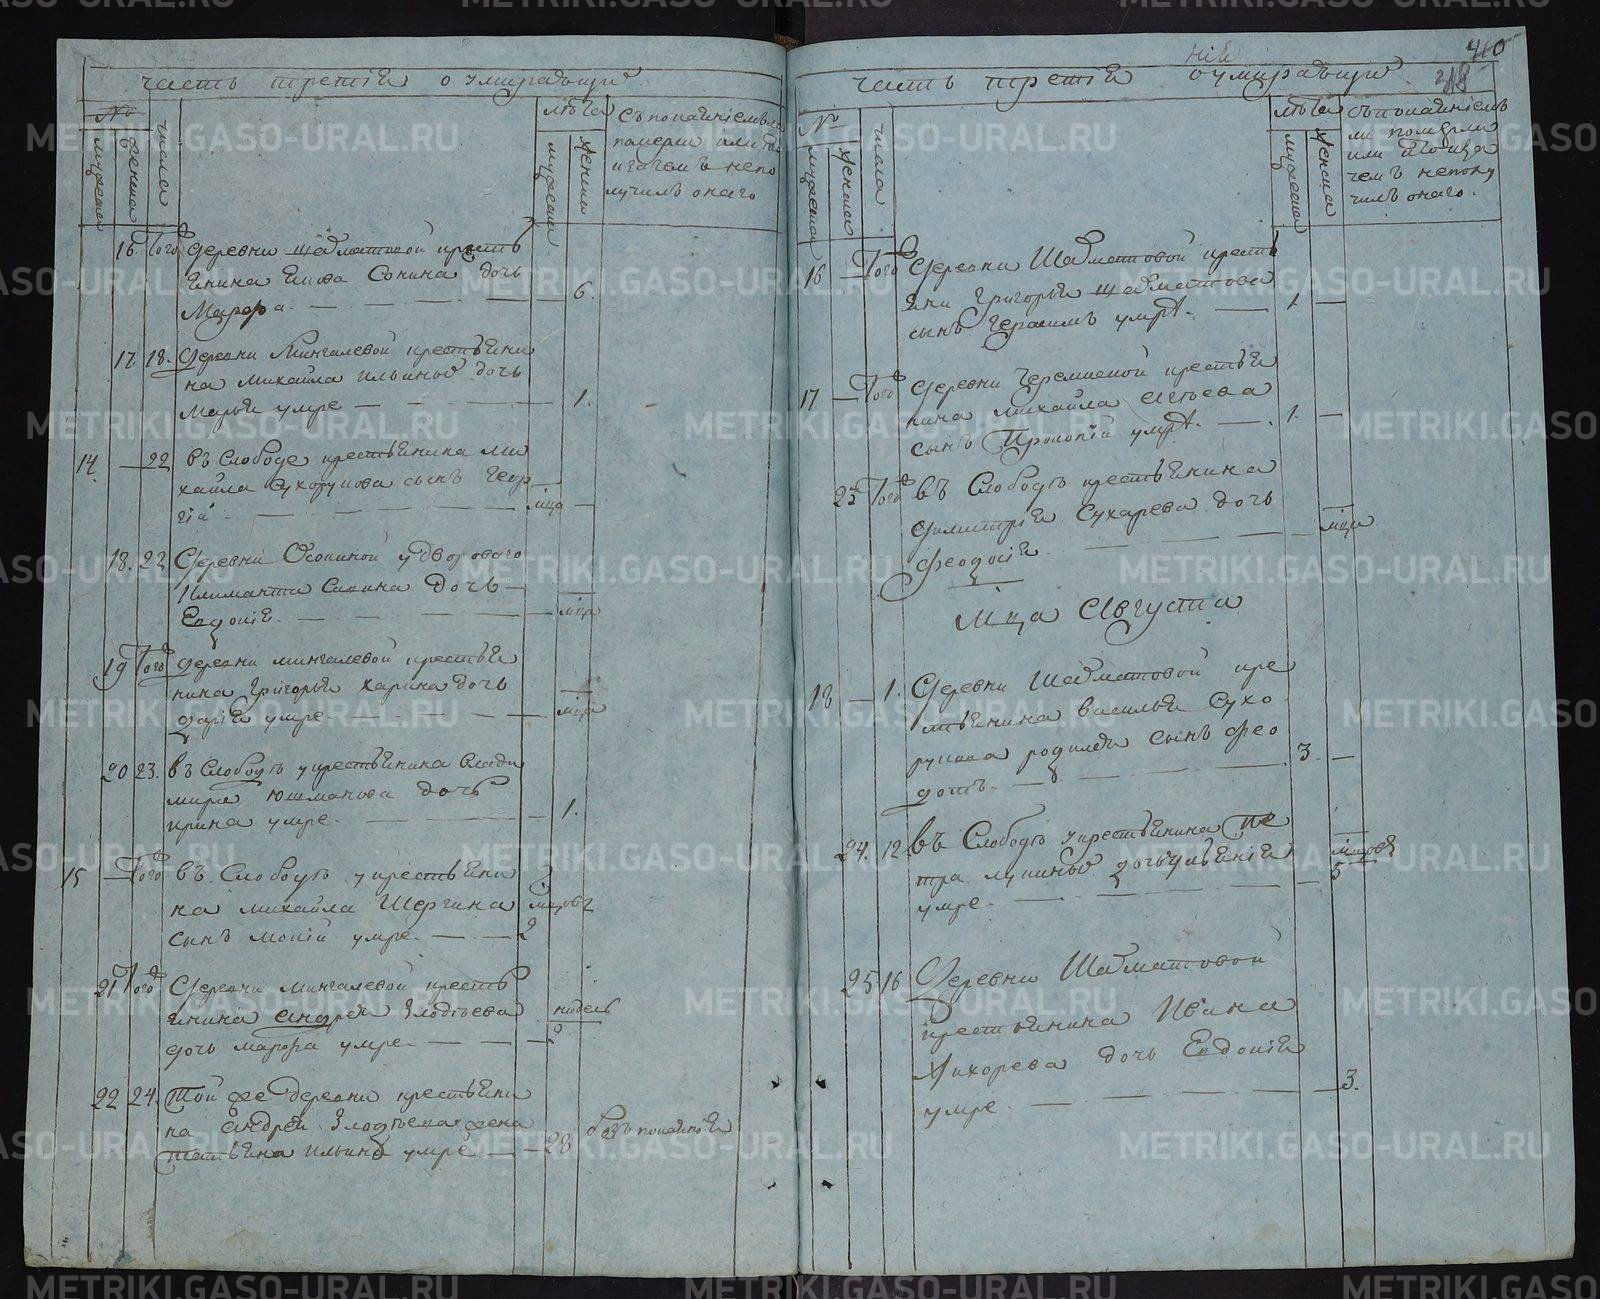 часть третія о умирающихъ
№
мужеска
женска
числа
лѣта
мужеска
женска
съ покаяніемъ ли
померли или
и зачемъ непо
лучилъ онаго
16. Того деревни Шабматовой кресть
янина Сонина дочь
Марфа 6.
17. 18. деревни Мингалевой крестьяни
на Михаила Ильиных дочь
Марья умре 1.
14. 22 въ Слободе крестьянина Ми
хайла Сухорукова сынъ Геор
гій мца
18. 22 Деревни Осокиной у дворового
Климанта Сапина дочь
Евдокія мца
19 Того деревни Мингалевой крестья
нина Григорья Харина дочь
Дарія умре мца
20 23. въ Слободѣ у крестьянина Влади
мира Юшманова дочь
Ирина умре 1.
15 Того въ Слободѣ у крестьяни
на Михайла Шергина
сынъ Мокій умре мцовъ 2
21 Того Деревни Мингалевой кресть
янина Андрея Злодѣева
дочь Марфа умре недель 2
22 24. Той же деревни крестьяни
на Андрея Злодѣева жена
Татьяна Ильина умре 28 безъ покаянія
410
318
часть третія о умирающихъ
№
мужеска
женска
числа
лѣта
мужеска
женска
съ покаяніемъ
ли померли
или
чемъ неполу
чилъ онаго.
16 Того Деревни Шабматовой кресть
яни Григорья Шабматова
сынъ Герасимъ умре. 1
17 Того Деревни Черемисской крестья
нина Михайла
сынъ Прокопій умре. 1.
23 Того въ Слободѣ крестьянина
Димитрія Сухарева дочь
Феодосія мца
Мца Августа
18 1. Деревни Шабматовой кре
стьянина Василья Сухо
рукова родился сынъ Фео
дотъ. 3.
24. 12. въ Слободѣ у крестьянина Пе
тра Лукиных дочь Ульянія
умре мцовъ 5
25 16 Деревни Шабматовой
крестьянина Ивана
Жихорева дочь Евдокія
умре 3.